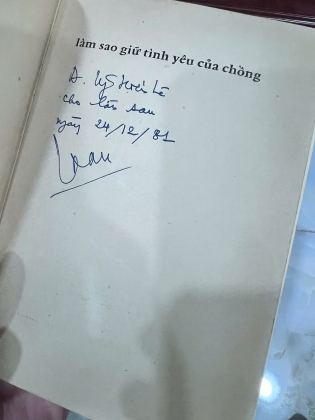 làm sao giữ tình yêu của chồng
A. Lý
cho lần sau
ngày 24/12/81